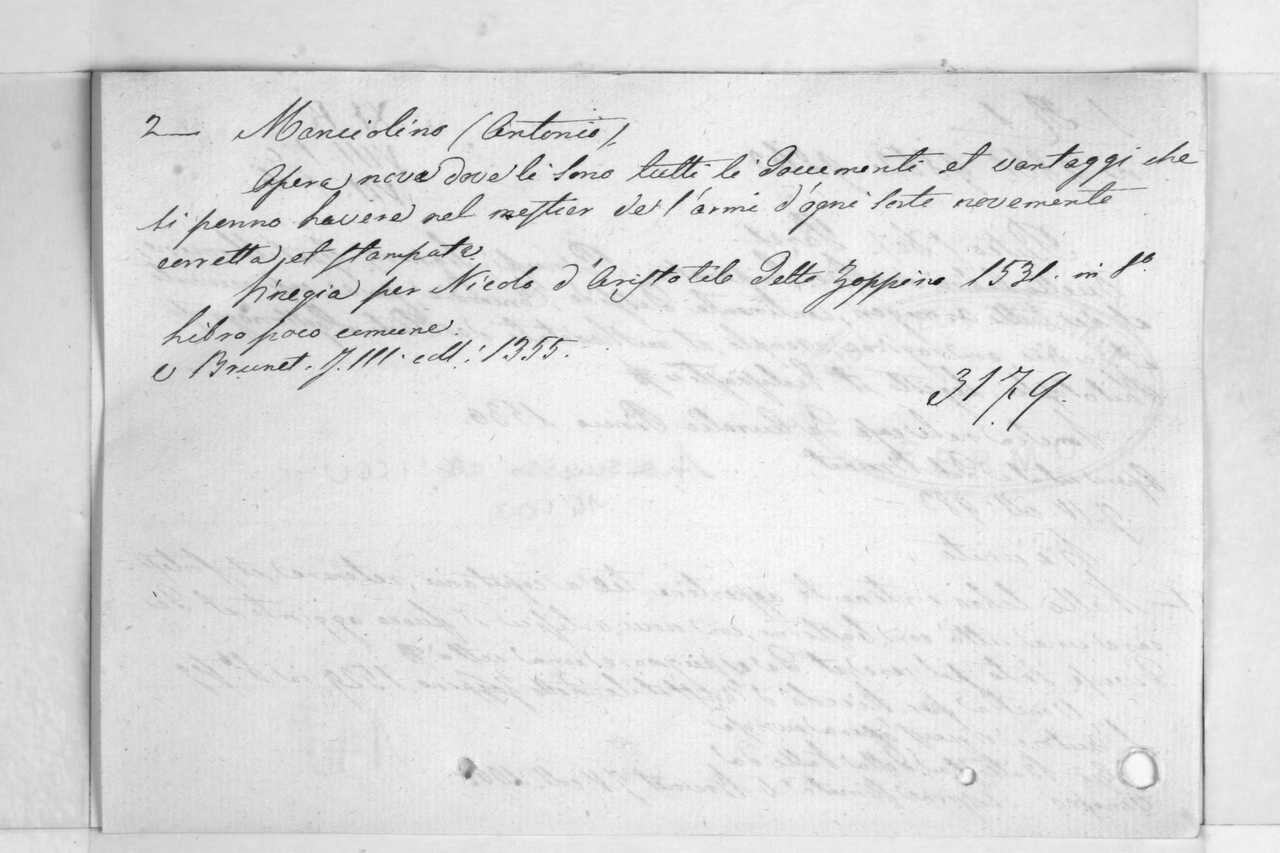 2— Manciolino (Antonio),
Opera nova dove li sono tutti li documenti et vantaggi che
si ponno havere nel mestier de l'armi d'ogni sorte novamente
corretta, et stampata.
Vinegia per Nicolo d'Aristotile detto Zoppino 1531. in 8°.
Libro poco comune.
v Brunet. T. III. coll: 1355.
3179.